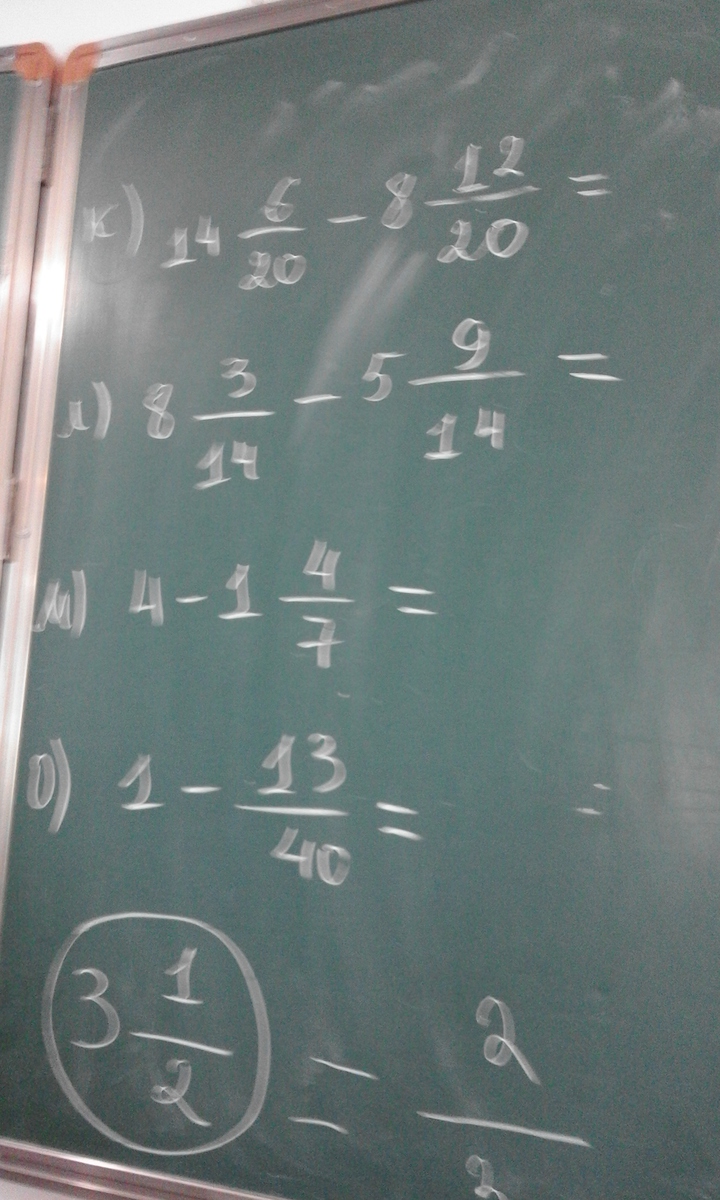 к) 14 6/20 - 8 12/20 =
л) 8 3/14 - 5 9/14 =
м) 4 - 1 4/7 =
о) 1 - 13/40 = =
3 1/2 = 2/